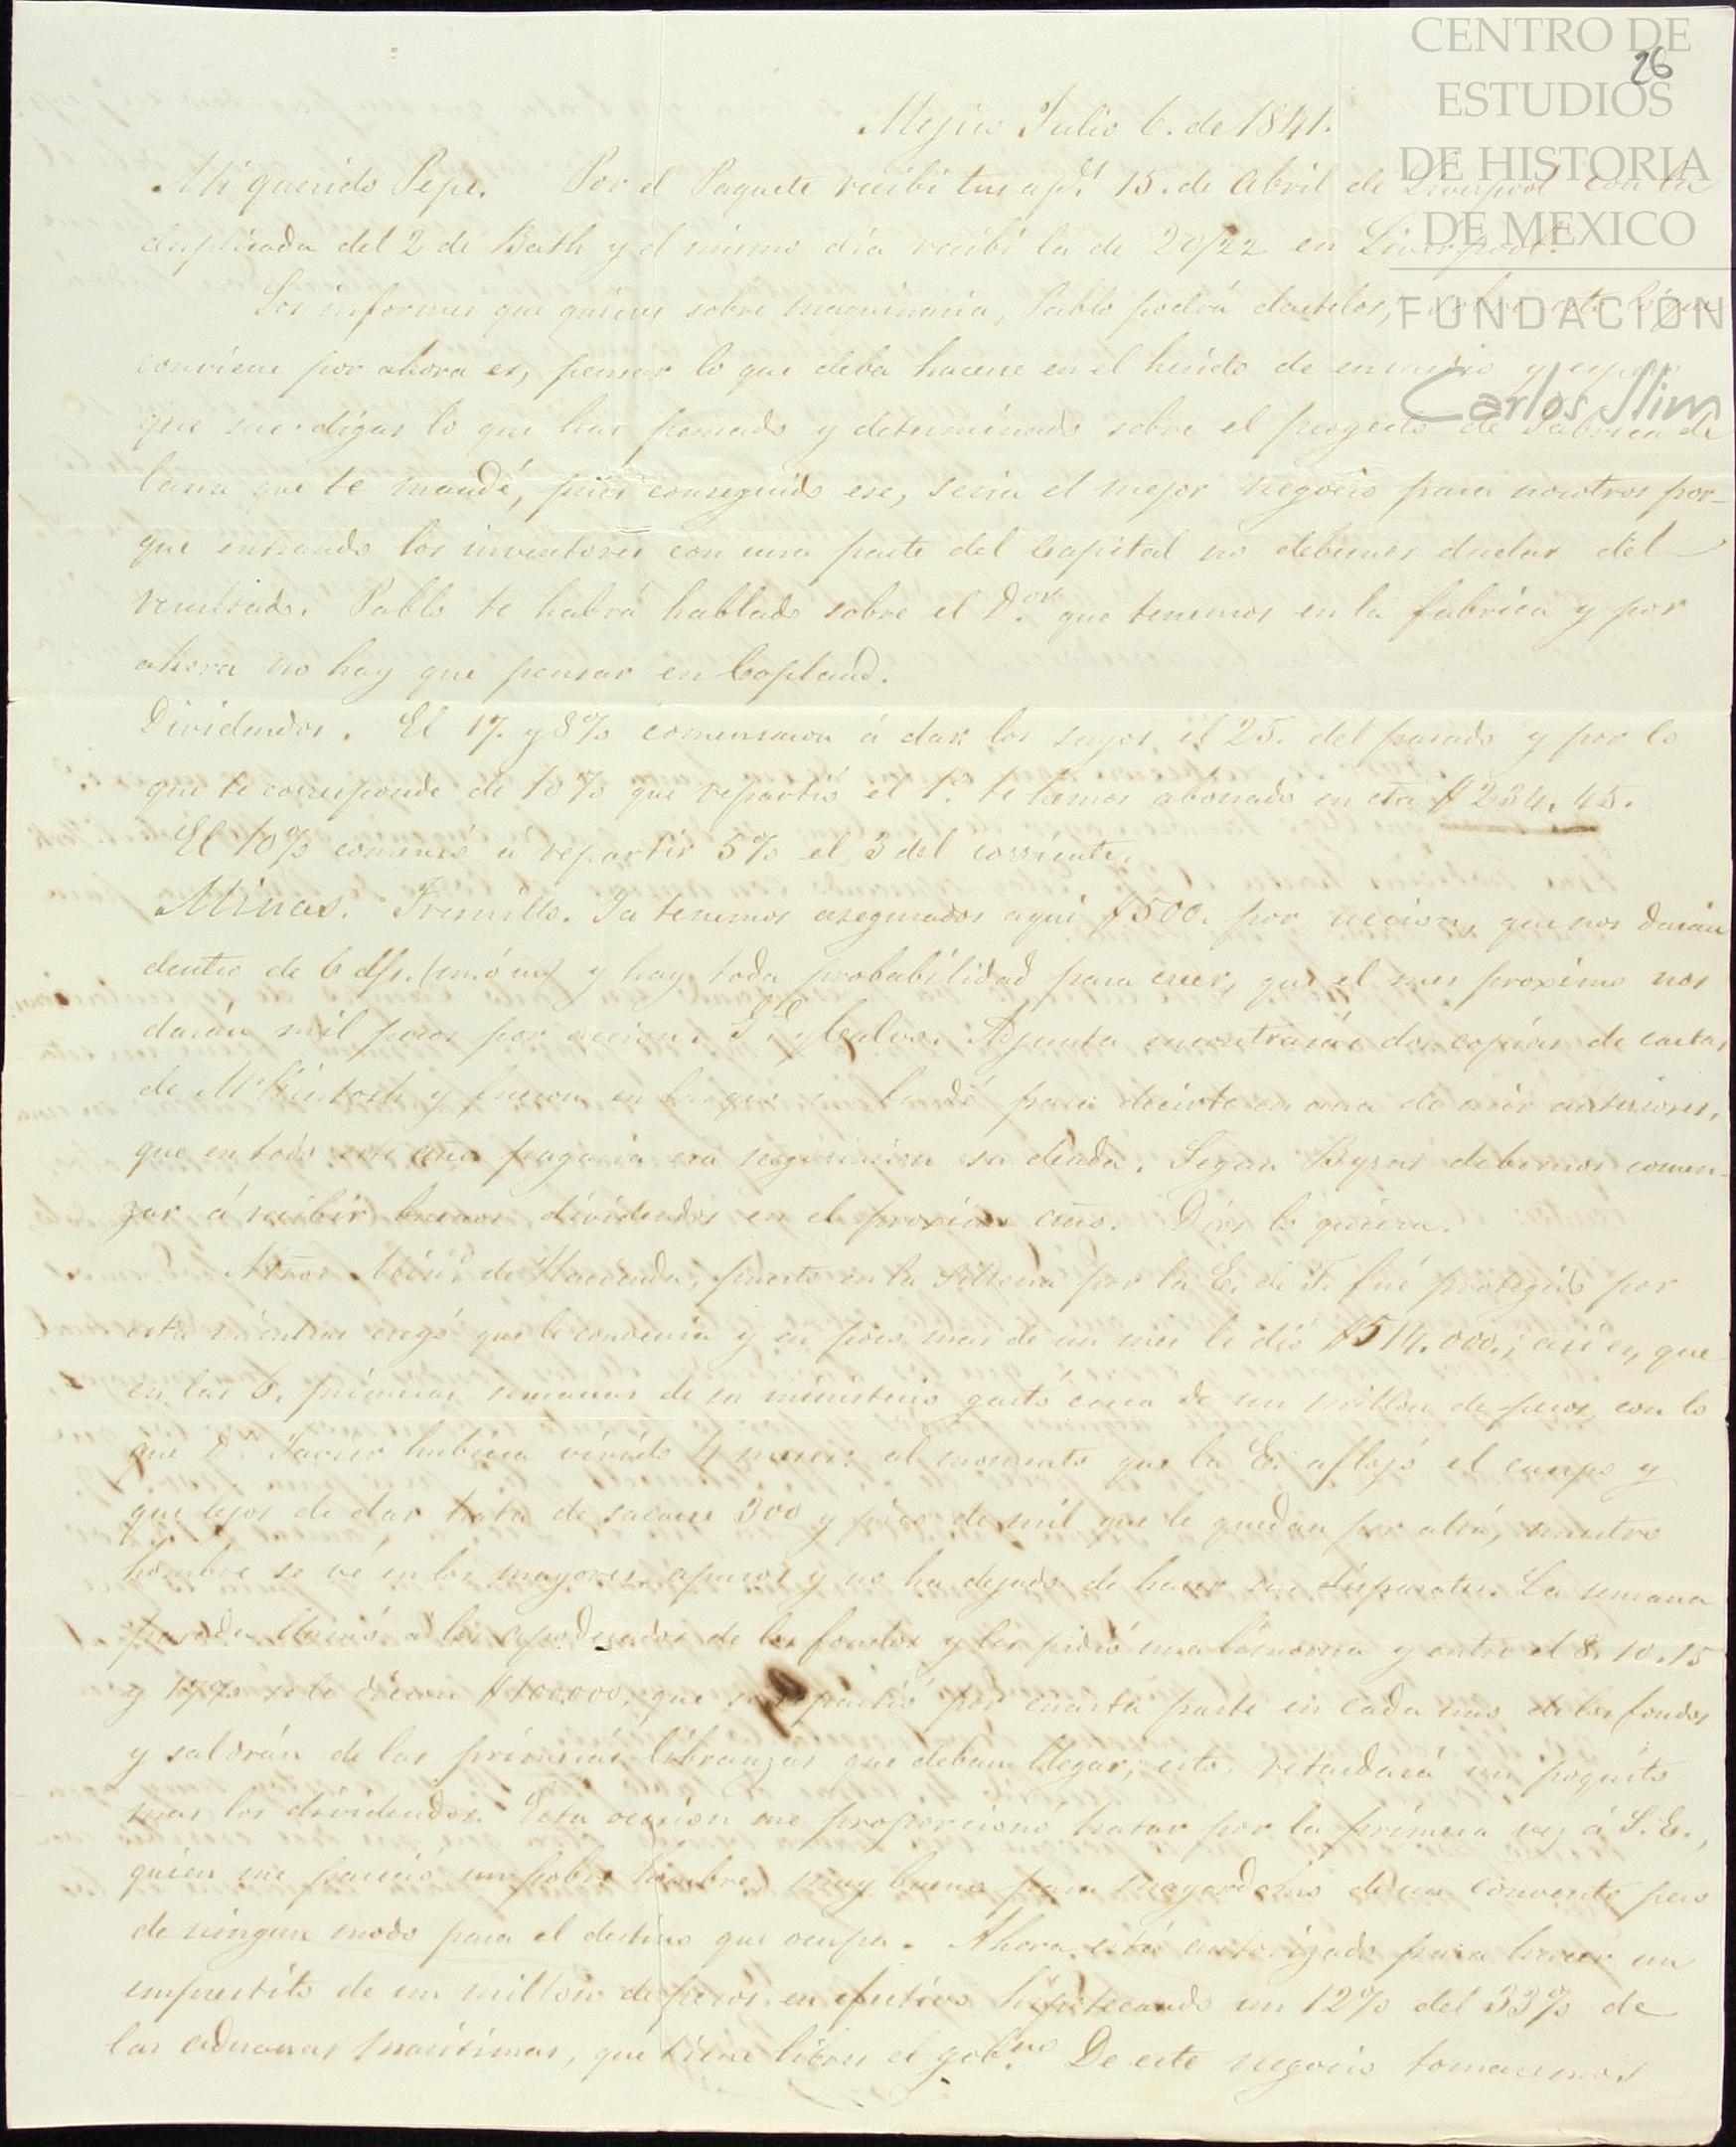 CENTRO DE
ESTUDIOS
DE HISTORIA
DE MEXICO
FUNDACIÓN
Carlos Slim
26
Mejico Julio 6. de 1841.
Mi querido Pepe. Por el Paquete recibi tu ap.d 15. de Abril de Liverpool con la
duplicada del 2 de Bath y el mismo dia recibi la de 20/22 en Liverpool.
Los informes que quieres sobre maquinaria, Pablo podrá dartelos, sobre esto lo que
conviene por ahora es, pensar lo que deba hacerse en el hecido de en medio y espero
que me digas lo que has pensado y determinado sobre el proyecto de Fabrica de
lana que te mandé, pues conseguido ese, seria el mejor negocio para nosotros por-
que entrando los inventores con una parte del Capital no debemos dudar del
resultado. Pablo te habrá hablado sobre el D.or que tenemos en la fabrica y por
ahora no hay que pensar en Copland.
Dividendos. El 17. y 8% comensaron á dar los suyos el 25. del pasado y por lo
que te corresponde de 10% que repartió el 1.º te hemos abonado en cta $234.45.
El 10% comensó á repartir 5% el 3 del corriente.
Minas. Fresnillo. Ya tenemos asegurados aqui $500. por accion, que nos darán
dentro de 6 dfs. y hay toda probabilidad para creer, que el mes proximo nos
darán mil pesos por accion. G.pe y Calvo. Adjunta encontrarás dos copias de cartas
de McKintosh y fueron en las que me fundé para decirte en una de mis anteriores,
que en todo este año pagaria esa negociacion su deuda. Segun Byrns debemos comen-
zar á recibir buenos dividendos en el proximo año. Dios lo quiera.
Ntro Min.o de Hacienda, puesto en la Sillona por la E. de T. fué protegido por
esta mientras creyó que le convenia y en poco mas de un mes le dió $514.000.; asi es, que
en las 6. primeras semanas de su ministerio gastó cerca de un millon de pesos, con lo
que D.n Javier hubiera vivido 4 meses: al momento que la E. aflojó el cuerpo y
que lejos de dar trata de sacarse 300 y pico de mil que le quedan por allá, nuestro
hombre se vé en los mayores apuros y no ha dejado de hacer sus disparates. La semana
pasada llamó a los apoderados de los fondos y les pidió una limosna y entre el 8. 10. 15
y 17% se le dieron $100.000. que se repartió por cuarta parte en cada uno de los fondos
y saldrán de las primeras libranzas que deban llegar; esto retardará un poquito
mas los dividendos. Esta ocasion me proporcionó tratar por la primera vez á S.E.,
quien me pareció un pobre hombre, muy bueno para mayordomo de un convento pero
de ningun modo para el destino que ocupa. Ahora está autorizado para hacer un
emprestito de un millon de pesos en efectivo hipotecando un 12% del 33% de
las aduanas maritimas, que tiene libres el gob.no De este negocio tomaremos